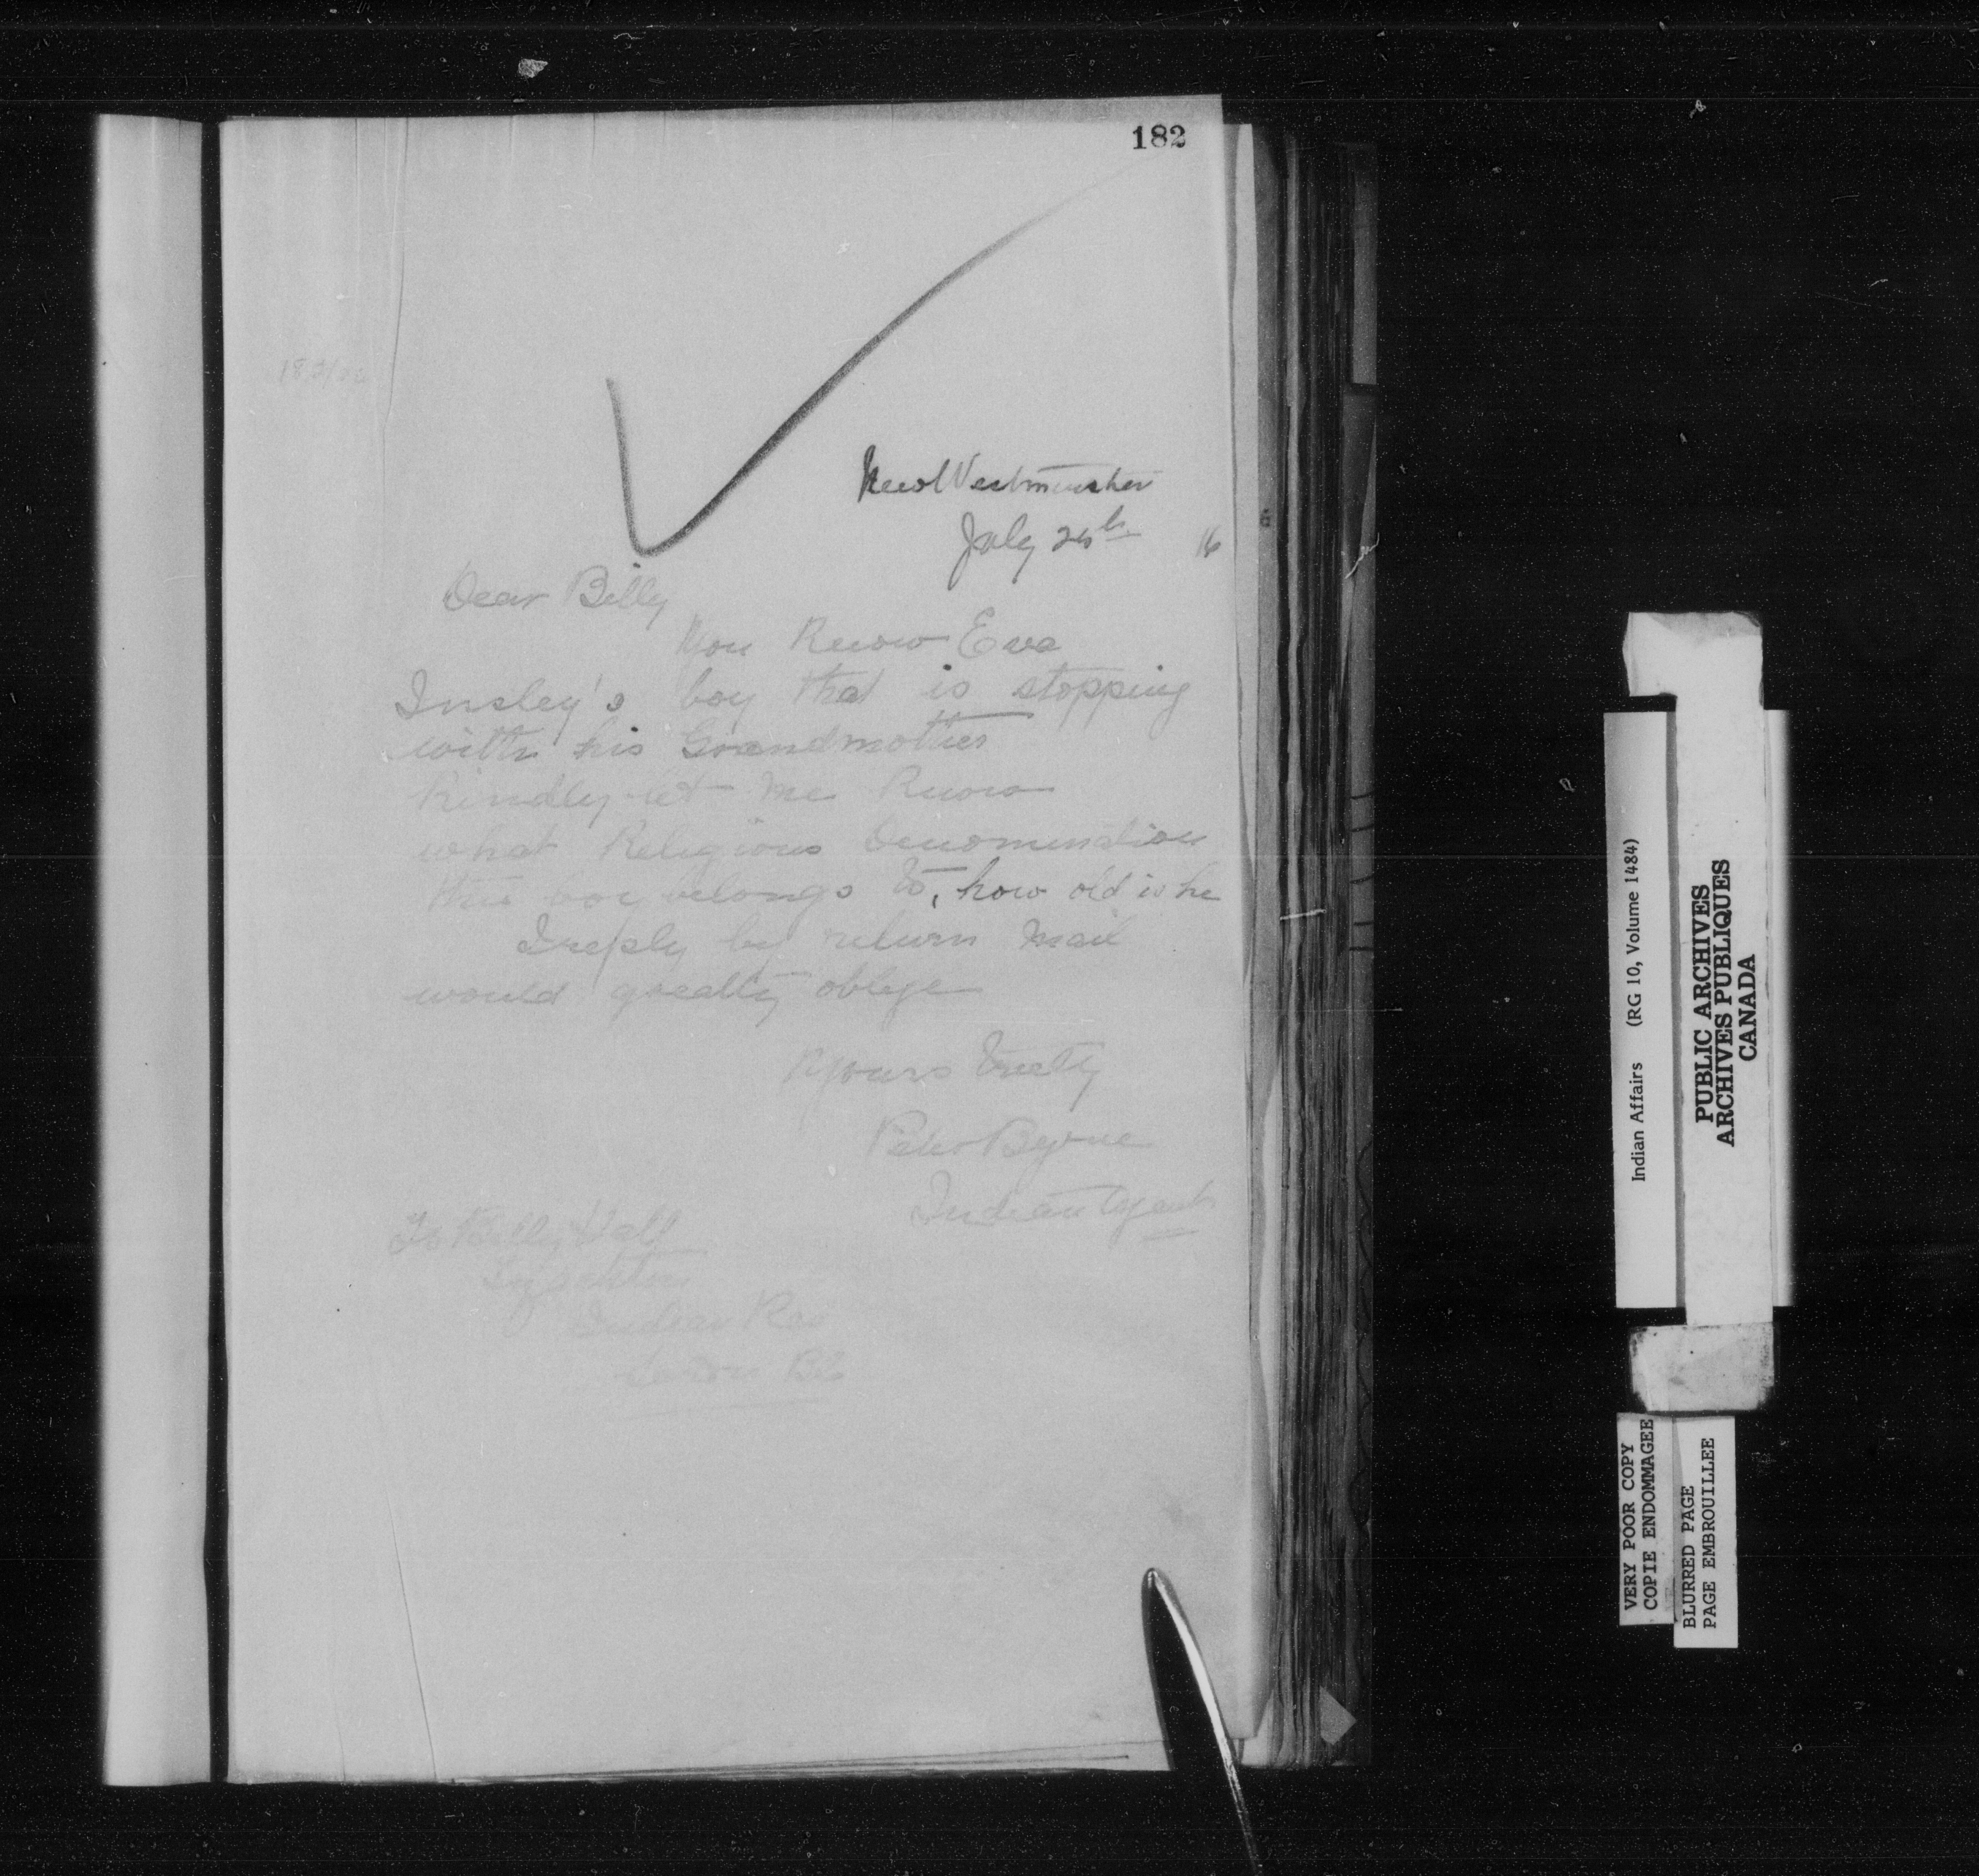 182
New Westminster
July 25th 16
Dear Billy
You Know Eva
Insley's boy that is stopping
with his Grandmother
Kindly let me Know
what Religious Denomination
this boy belongs to, how old is he
A reply by return Mail
would greatly oblige
Yours Truly
Peter Byrne
Indian Agent
To Billy Hall
Indian Res
BC
Indian Affairs (RG 10, Volume 1484)
PUBLIC ARCHIVES
ARCHIVES PUBLIQUES
CANADA
VERY POOR COPY
COPIE ENDOMMAGEE
BLURRED PAGE
PAGE EMBROUILLEE